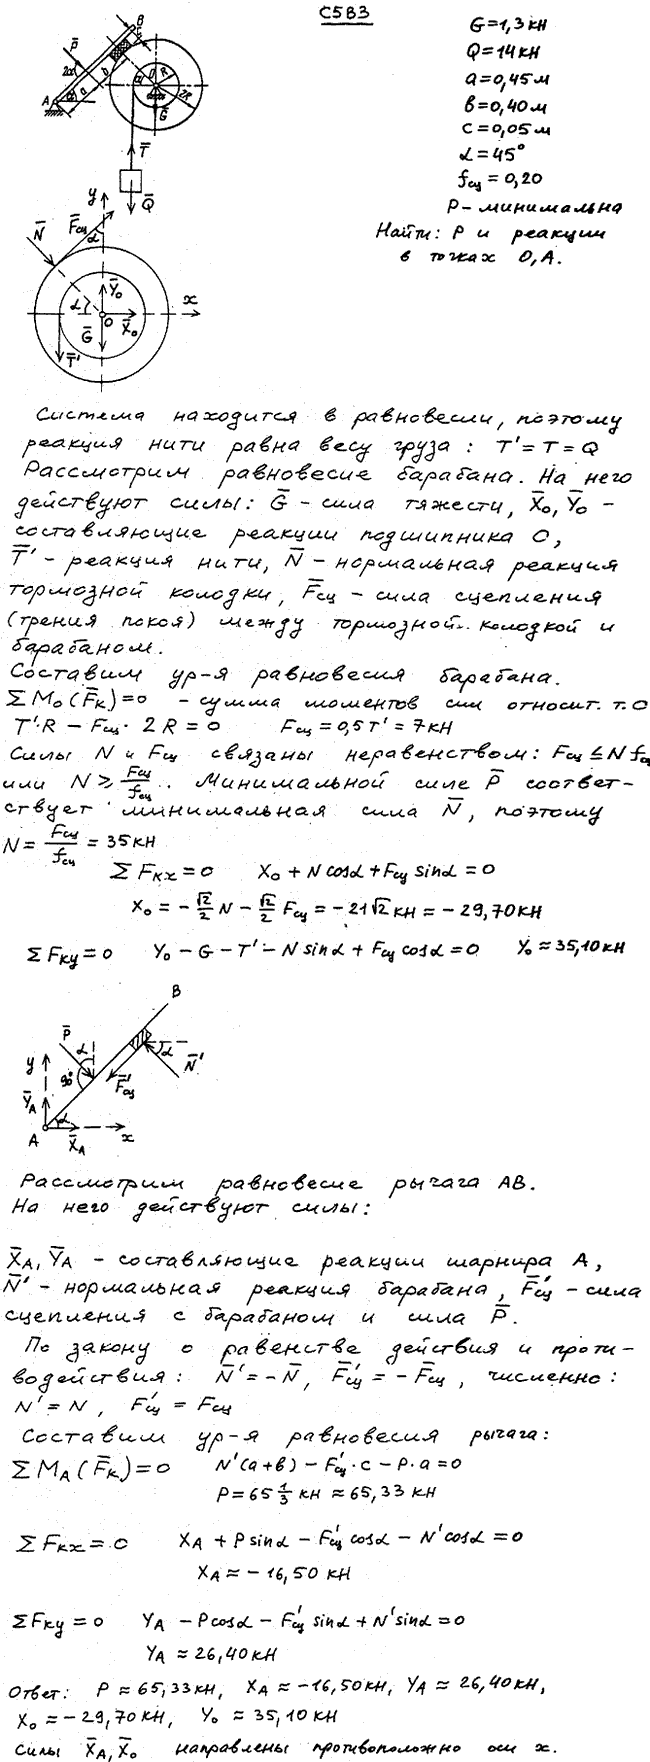 С5В3
G=1,3кН
Q=14кН
a=0,45м
в=0,40м
с=0,05м
α=45°
fсц=0,20
P-минимальна
Найти: P и реакции
в точках O,A.
Система находится в равновесии, поэтому
реакция нити равна весу груза: T'=T=Q
Рассмотрим равновесие барабана. На него
действуют силы: G̅ - сила тяжести, X̅o, Y̅o -
составляющие реакции подшипника O,
T̅' - реакция нити, N̅ - нормальная реакция
тормозной колодки, F̅сц - сила сцепления
(трения покоя) между тормозной колодкой и
барабаном.
Составим ур-я равновесия барабана.
ΣMo(F̅к)=0 - сумма моментов сил относит. т.O
T'·R - Fсц·2R=0 Fсц=0,5T'=7кН
Силы N и Fсц связаны неравенством: Fсц≤Nfсц
или N≥Fсц/fсц. Минимальной силе P̅ соответ-
ствует минимальная сила N̅, поэтому
N=Fсц/fсц=35кН
ΣFкx=0 Xo+Ncosα+Fсц sinα=0
Xo=-√2/2 N-√2/2 Fсц=-21√2кН≈-29,70кН
ΣFкy=0 Yo-G-T'-Nsinα+Fсц cosα=0 Yo≈35,10кН
Рассмотрим равновесие рычага AB.
На него действуют силы:
X̅A, Y̅A - составляющие реакции шарнира A,
N̅' - нормальная реакция барабана, F̅'сц - сила
сцепления с барабаном и сила P̅.
По закону о равенстве действия и проти-
водействия: N̅'=-N̅, F̅'сц=-F̅сц, численно:
N'=N, F'сц=Fсц
Составим ур-я равновесия рычага:
ΣMA(F̅к)=0 N'(a+в)-F'сц·с-P·a=0
P=65 1/3 кН≈65,33кН
ΣFкx=0 XA+Psinα-F'сц cosα-N'cosα=0
XA≈-16,50кН
ΣFкy=0 YA-Pcosα-F'сц sinα+N'sinα=0
YA≈26,40кН
Ответ: P≈65,33кН, XA≈-16,50кН, YA≈26,40кН,
Xo≈-29,70кН, Yo≈35,10кН
Силы X̅A, X̅o направлены противоположно оси x.